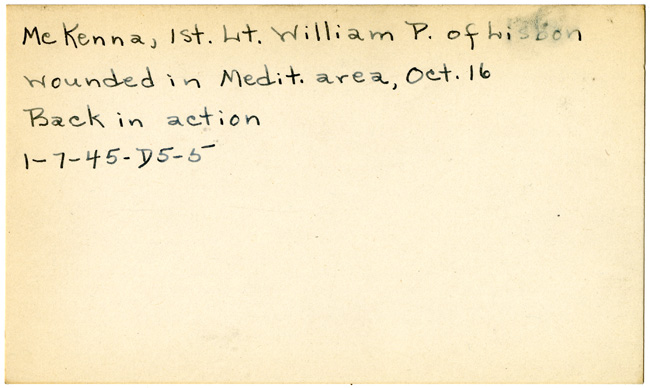 McKenna, 1st. Lt. William P. of Lisbon
Wounded in Medit. area, Oct. 16
Back in action
1-7-45-D5-5